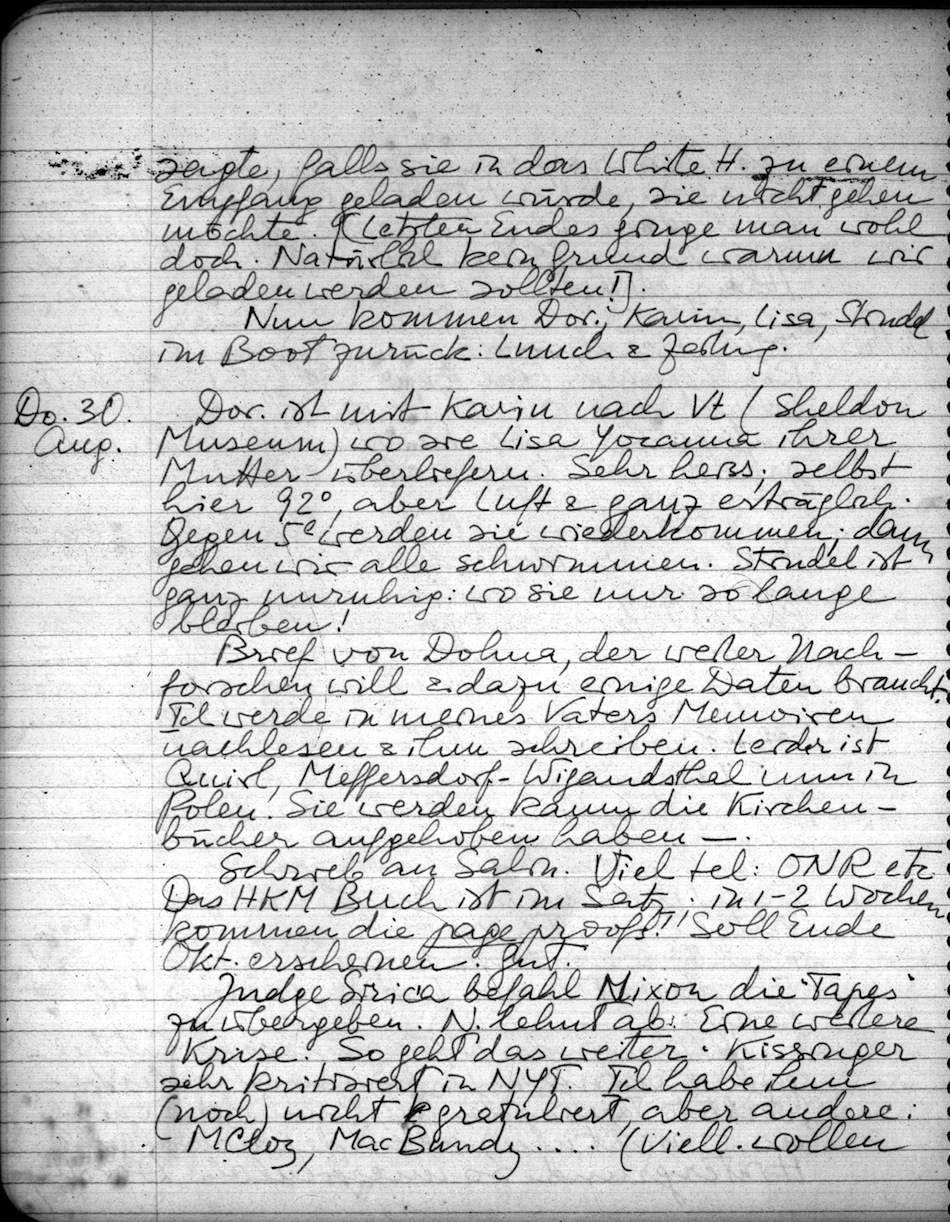 sagte, falls sie in das White H. zu einem
Empfang geladen würde, sie nicht gehen
möchte. [Letzten Endes ginge man wohl
doch. Natürlich kein Grund warum wir
geladen werden sollten!].
Nun kommen Dor., Karin, Lisa, Strudel
im Boot zurück: Lunch & Zeitung.
Do. 30. Dor. ist mit Karin nach Vt (Sheldon
Aug. Museum) wo sie Lisa ihrer
Mutter überliefern. Sehr heiss, selbst
hier 92°, aber Luft & ganz erträglich.
Gegen 5e werden sie wiederkommen; dann
gehen wir alle schwimmen. Strudel ist
ganz unruhig: wo sie nur so lange
bleiben!
Brief von Dohna, der weiter Nach-
forschen will & dazu einige Daten braucht.
Ich werde in meines Vaters Memoiren
nachlesen & ihm schreiben. Leider ist
Quirl, Meffersdorf-Wigandsthal nun in
Polen. Sie werden kaum die Kirchen-
bücher aufgehoben haben —.
Schrieb an Salin. Viel tel: ONR etc
Das HKM Buch ist im Satz. in 1-2 Wochen
kommen die page proofs!! Soll Ende
Okt. erscheinen. Gut.
Judge Sirica befahl Nixon die "Tapes"
zu übergeben. N. lehnt ab: Eine weitere
Krise. So geht das weiter. Kissinger
sehr kritisiert in NYT. Ich habe ihm
(noch) nicht gratuliert, aber andere:
McCloy, Mac Bundy .... (Viell. wollen